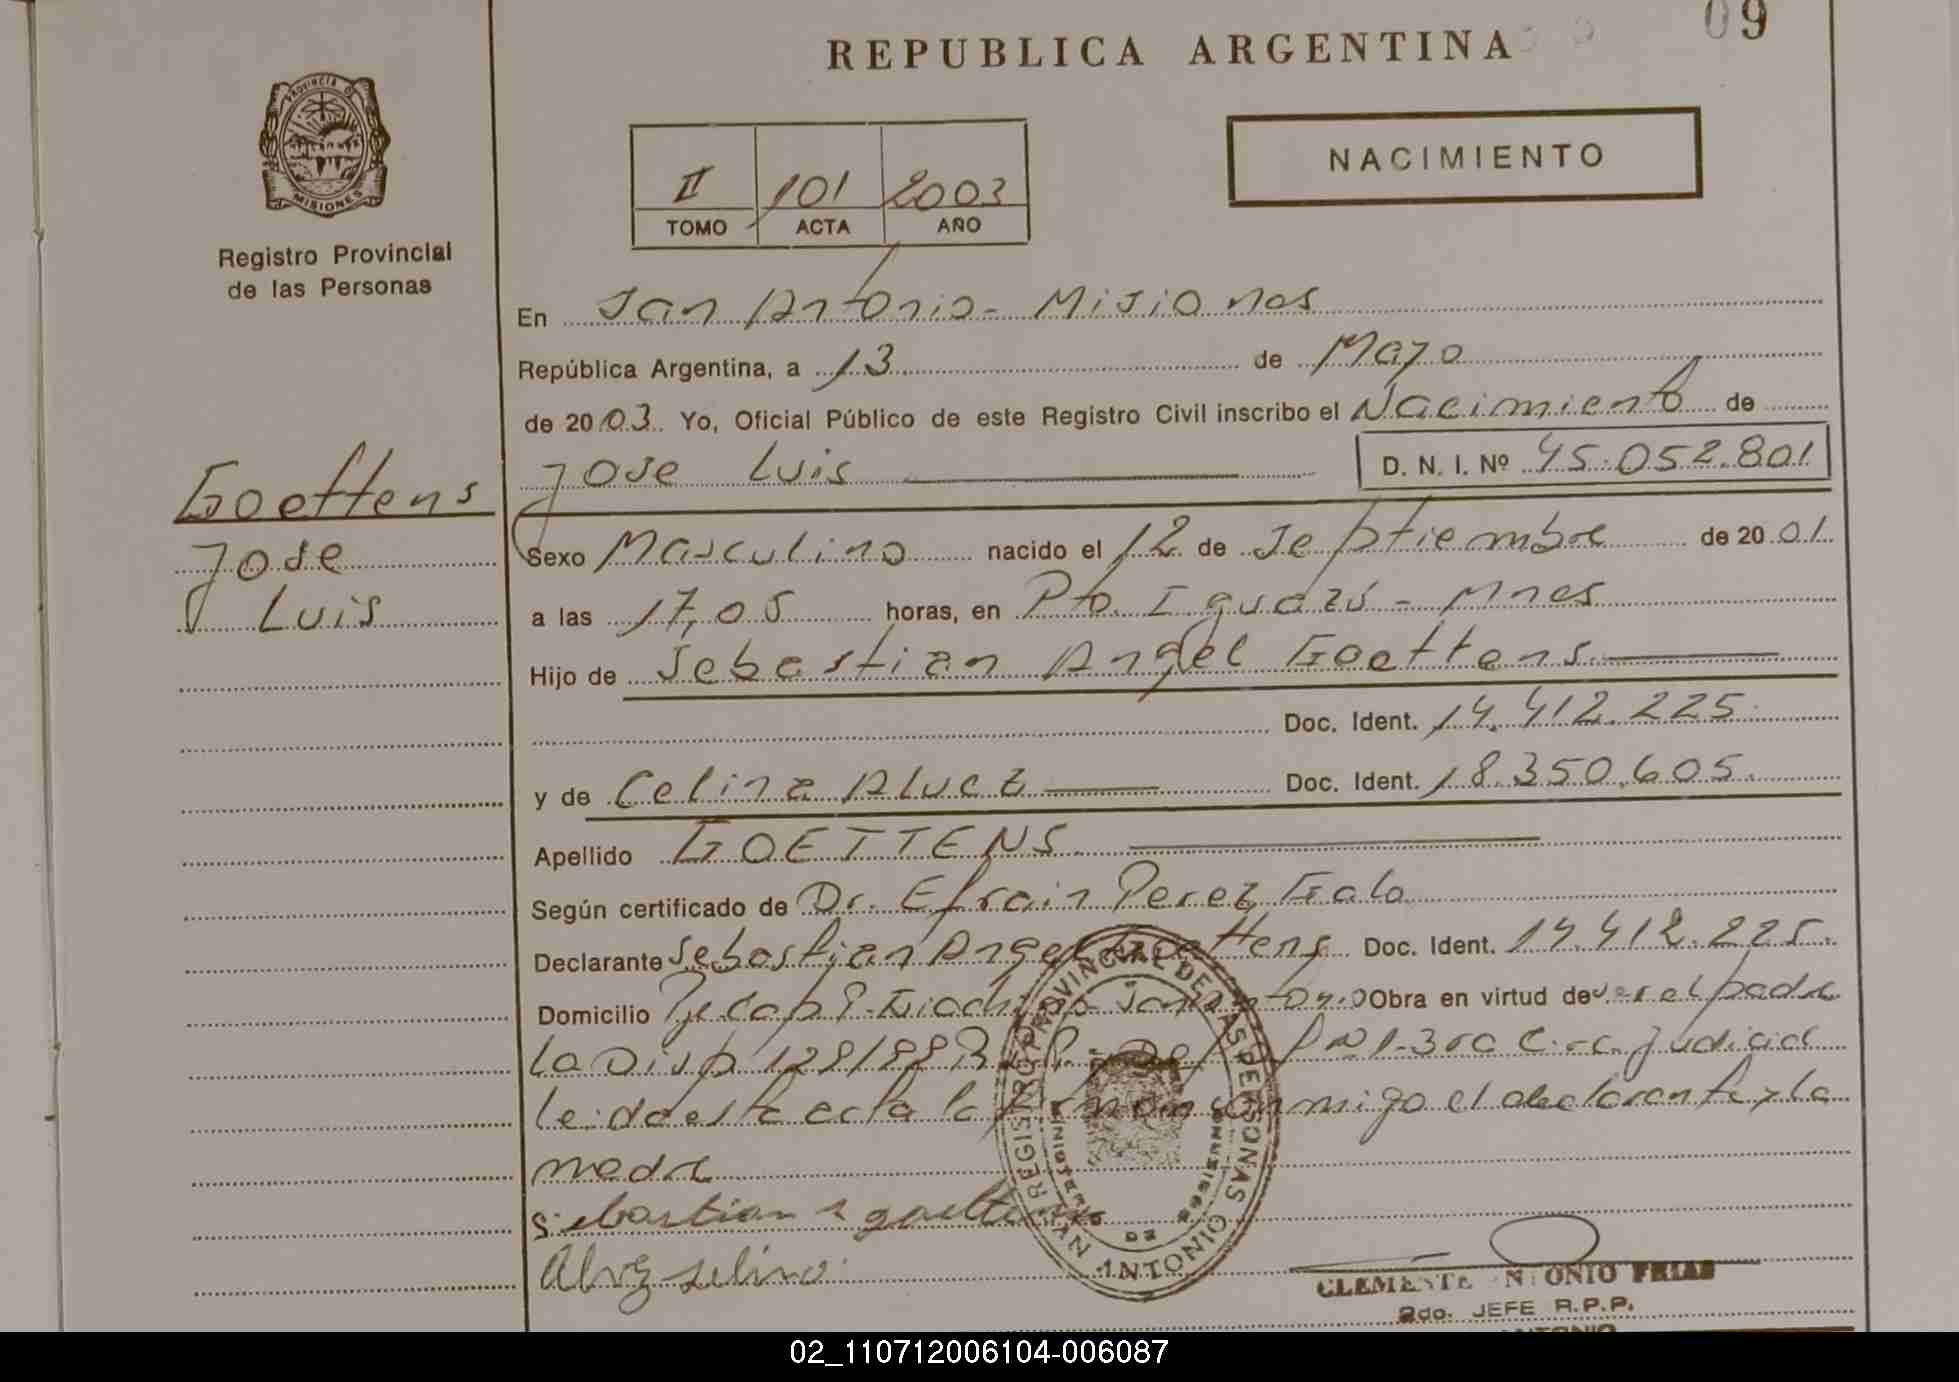 REPUBLICA ARGENTINA
09
PROVINCIA DE
MISIONES
Registro Provincial
de las Personas
NACIMIENTO
II 101 2003
TOMO ACTA AÑO
En San Antonio - Misiones
República Argentina, a 13 de Mayo
de 2003 Yo, Oficial Público de este Registro Civil inscribo el Nacimiento de
Jose Luis D. N. I. Nº 45.052.801
Goettens
Jose
Luis
Sexo Masculino nacido el 12 de Septiembre de 2001
a las 17,05 horas, en Pto. Iguazú - Mnes
Hijo de Sebastian Angel Goettens
Doc. Ident. 14.412.225
y de Celina Alvez Doc. Ident. 18.350.605.
Apellido GOETTENS
Según certificado de Dr. Efrain Perez Galo
Declarante Sebastian Angel Goettens Doc. Ident. 14.412.225.
Domicilio San Antonio Obra en virtud de ser el padre
La Disp 128/88 3ra Circ. Judicial
leida esta acta la firman conmigo el declarante y la
madre
Sebastian a goettens
Alvez selina
REGISTRO PROVINCIAL DE LAS PERSONAS
MINISTERIO DE
SAN ANTONIO
CLEMENTE ANTONIO FRIAS
2do. JEFE R.P.P.
ANTONIO
02_110712006104-006087